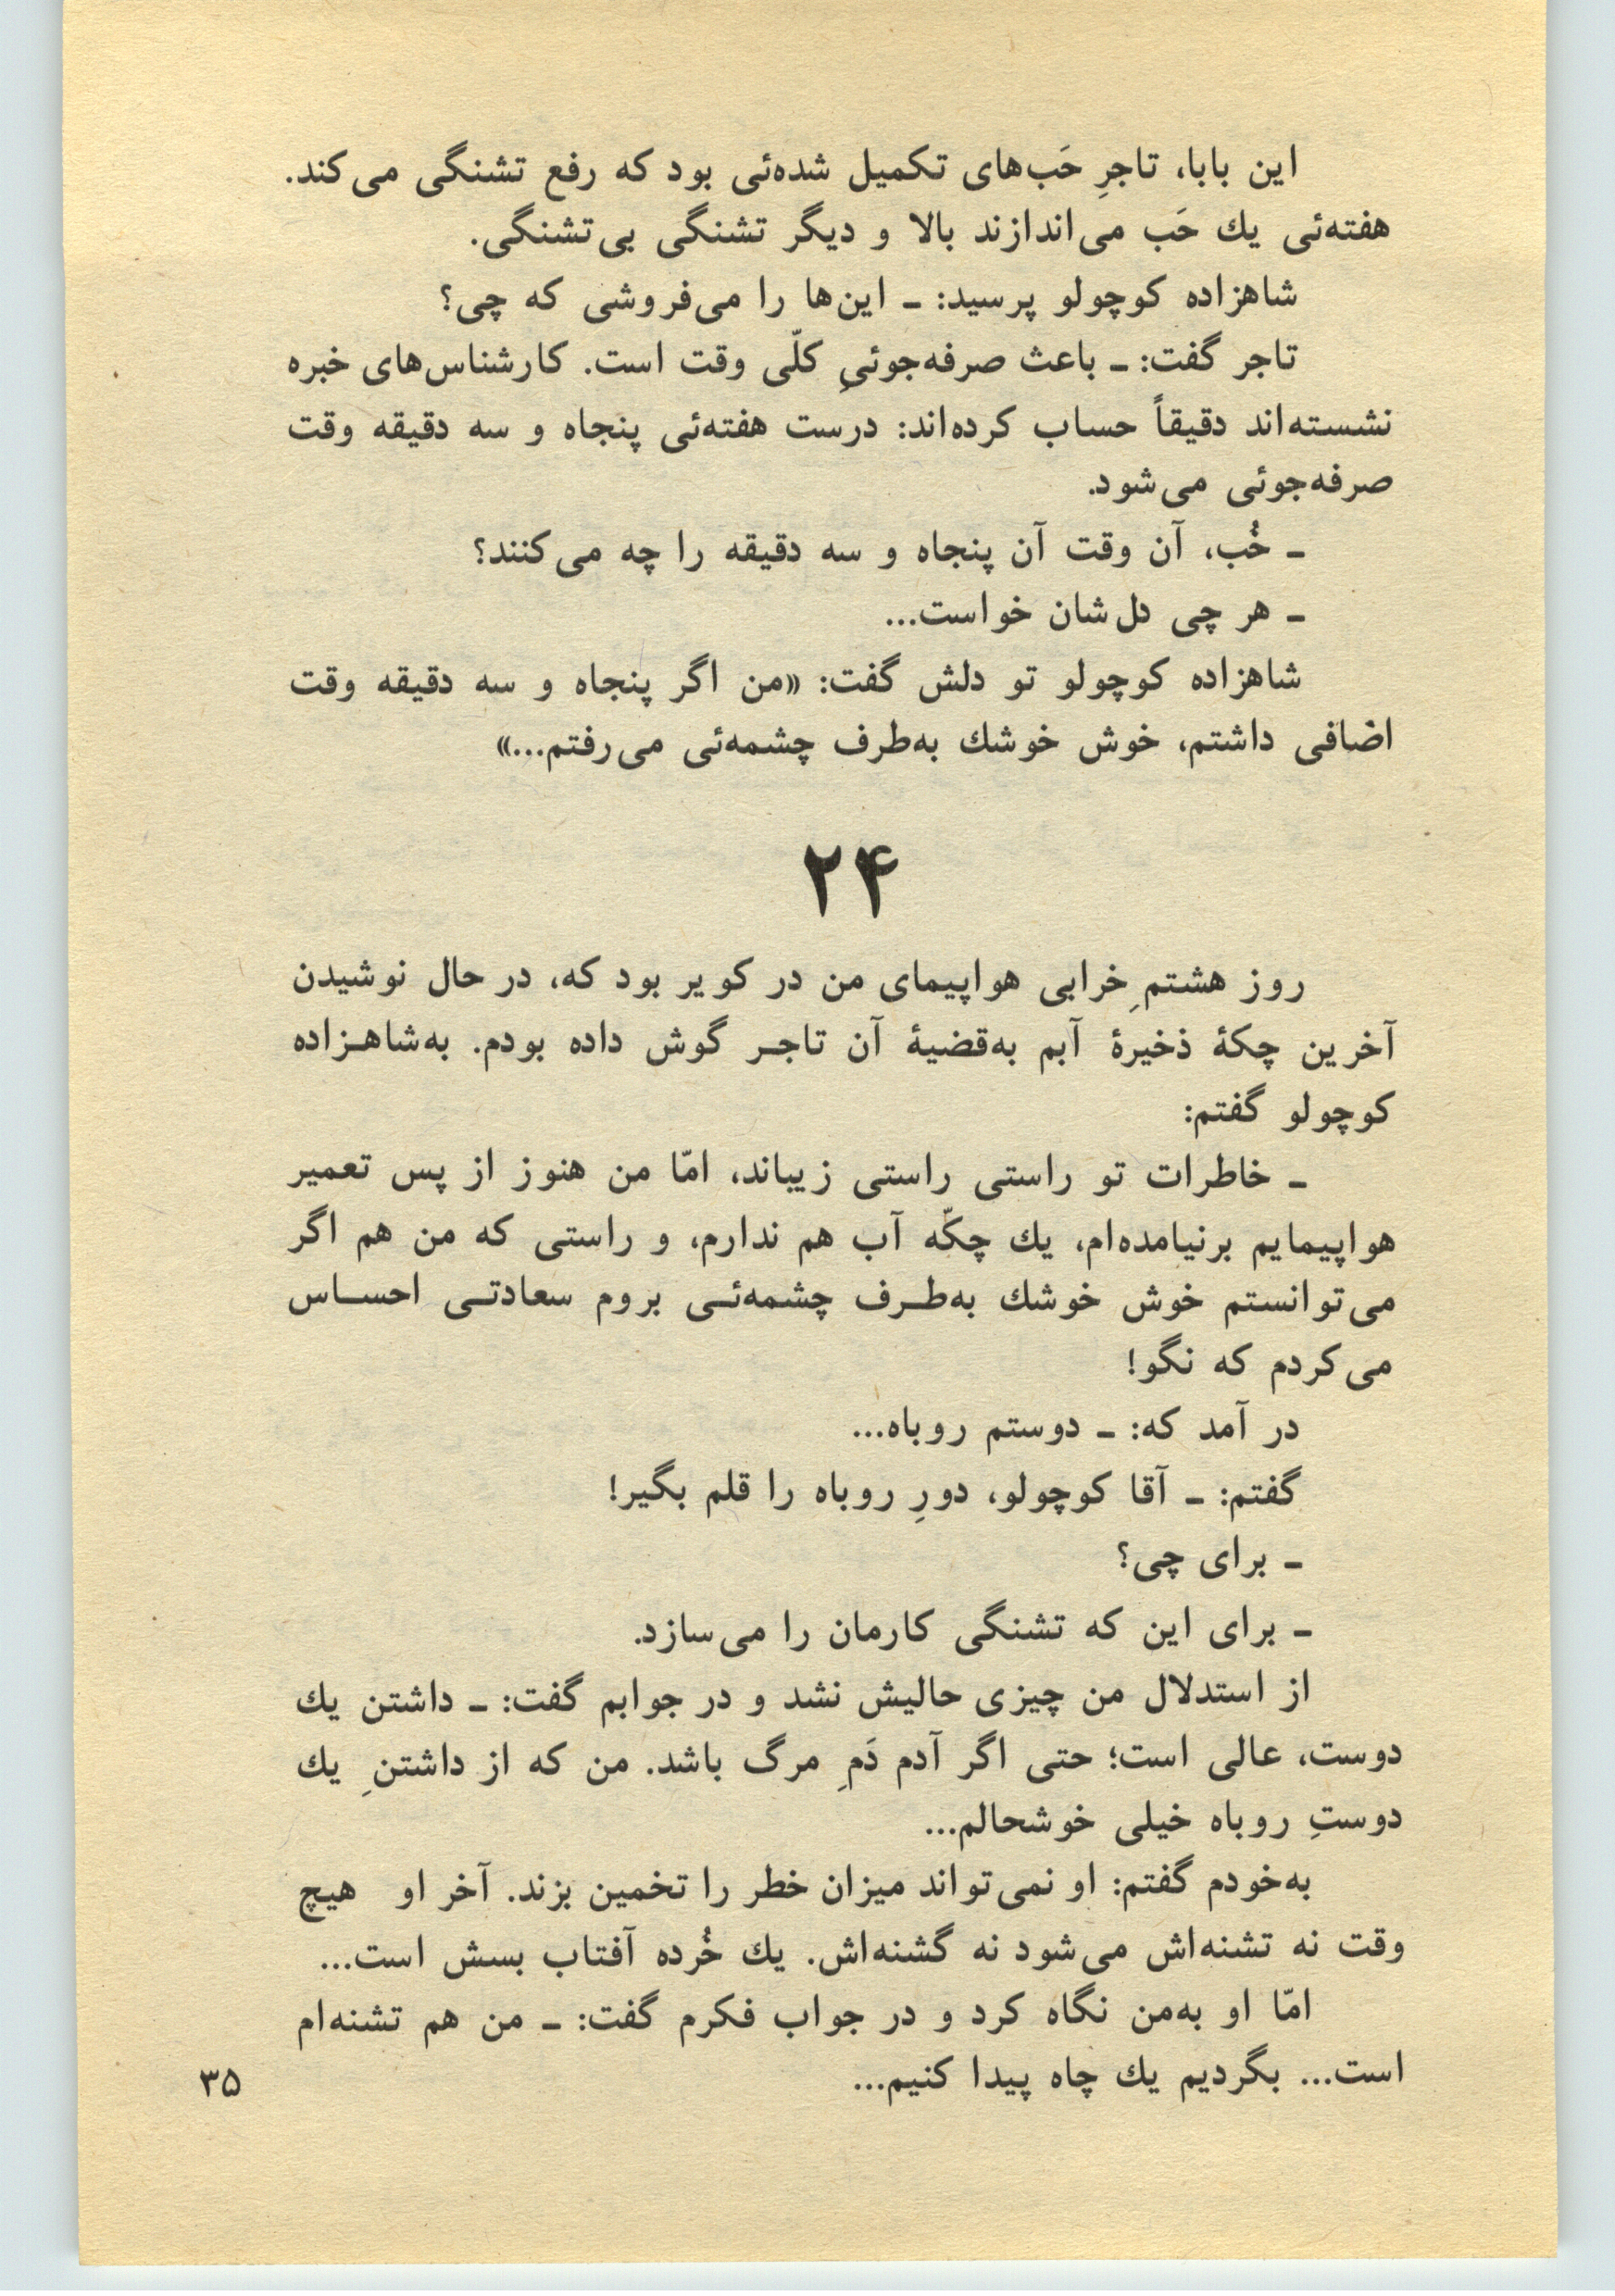 این بابا، تاجرِ حَب‌های تکمیل شده‌ئی بود که رفع تشنگی می‌کند.
هفته‌ئی یك حَب می‌اندازند بالا و دیگر تشنگی بی‌تشنگی.
شاهزاده کوچولو پرسید: ـ این‌ها را می‌فروشی که چی؟
تاجر گفت: ـ باعث صرفه‌جوئیِ کلّی وقت است. کارشناس‌های خبره
نشسته‌اند دقیقاً حساب کرده‌اند: درست هفته‌ئی پنجاه و سه دقیقه وقت
صرفه‌جوئی می‌شود.
ـ خُب، آن وقت آن پنجاه و سه دقیقه را چه می‌کنند؟
ـ هر چی دل‌شان خواست...
شاهزاده کوچولو تو دلش گفت: «من اگر پنجاه و سه دقیقه وقت
اضافی داشتم، خوش خوشك به‌طرف چشمه‌ئی می‌رفتم...»
۲۴
روز هشتمِ خرابی هواپیمای من در کویر بود که، در حال نوشیدن
آخرین چکهٔ ذخیرهٔ آبم به‌قضیهٔ آن تاجـر گوش داده بودم. به‌شاهـزاده
کوچولو گفتم:
ـ خاطرات تو راستی راستی زیباند، امّا من هنوز از پس تعمیر
هواپیمایم برنیامده‌ام، یك چکّه آب هم ندارم، و راستی که من هم اگر
می‌توانستم خوش خوشك به‌طـرف چشمه‌ئـی بروم سعادتـی احسـاس
می‌کردم که نگو!
در آمد که: ـ دوستم روباه...
گفتم: ـ آقا کوچولو، دورِ روباه را قلم بگیر!
ـ برای چی؟
ـ برای این که تشنگی کارمان را می‌سازد.
از استدلال من چیزی حالیش نشد و در جوابم گفت: ـ داشتن یك
دوست، عالی است؛ حتی اگر آدم دَمِ مرگ باشد. من که از داشتنِ یك
دوستِ روباه خیلی خوشحالم...
به‌خودم گفتم: او نمی‌تواند میزان خطر را تخمین بزند. آخر او هیچ
وقت نه تشنه‌اش می‌شود نه گشنه‌اش. یك خُرده آفتاب بسش است...
امّا او به‌من نگاه کرد و در جواب فکرم گفت: ـ من هم تشنه‌ام
است... بگردیم یك چاه پیدا کنیم...
۳۵